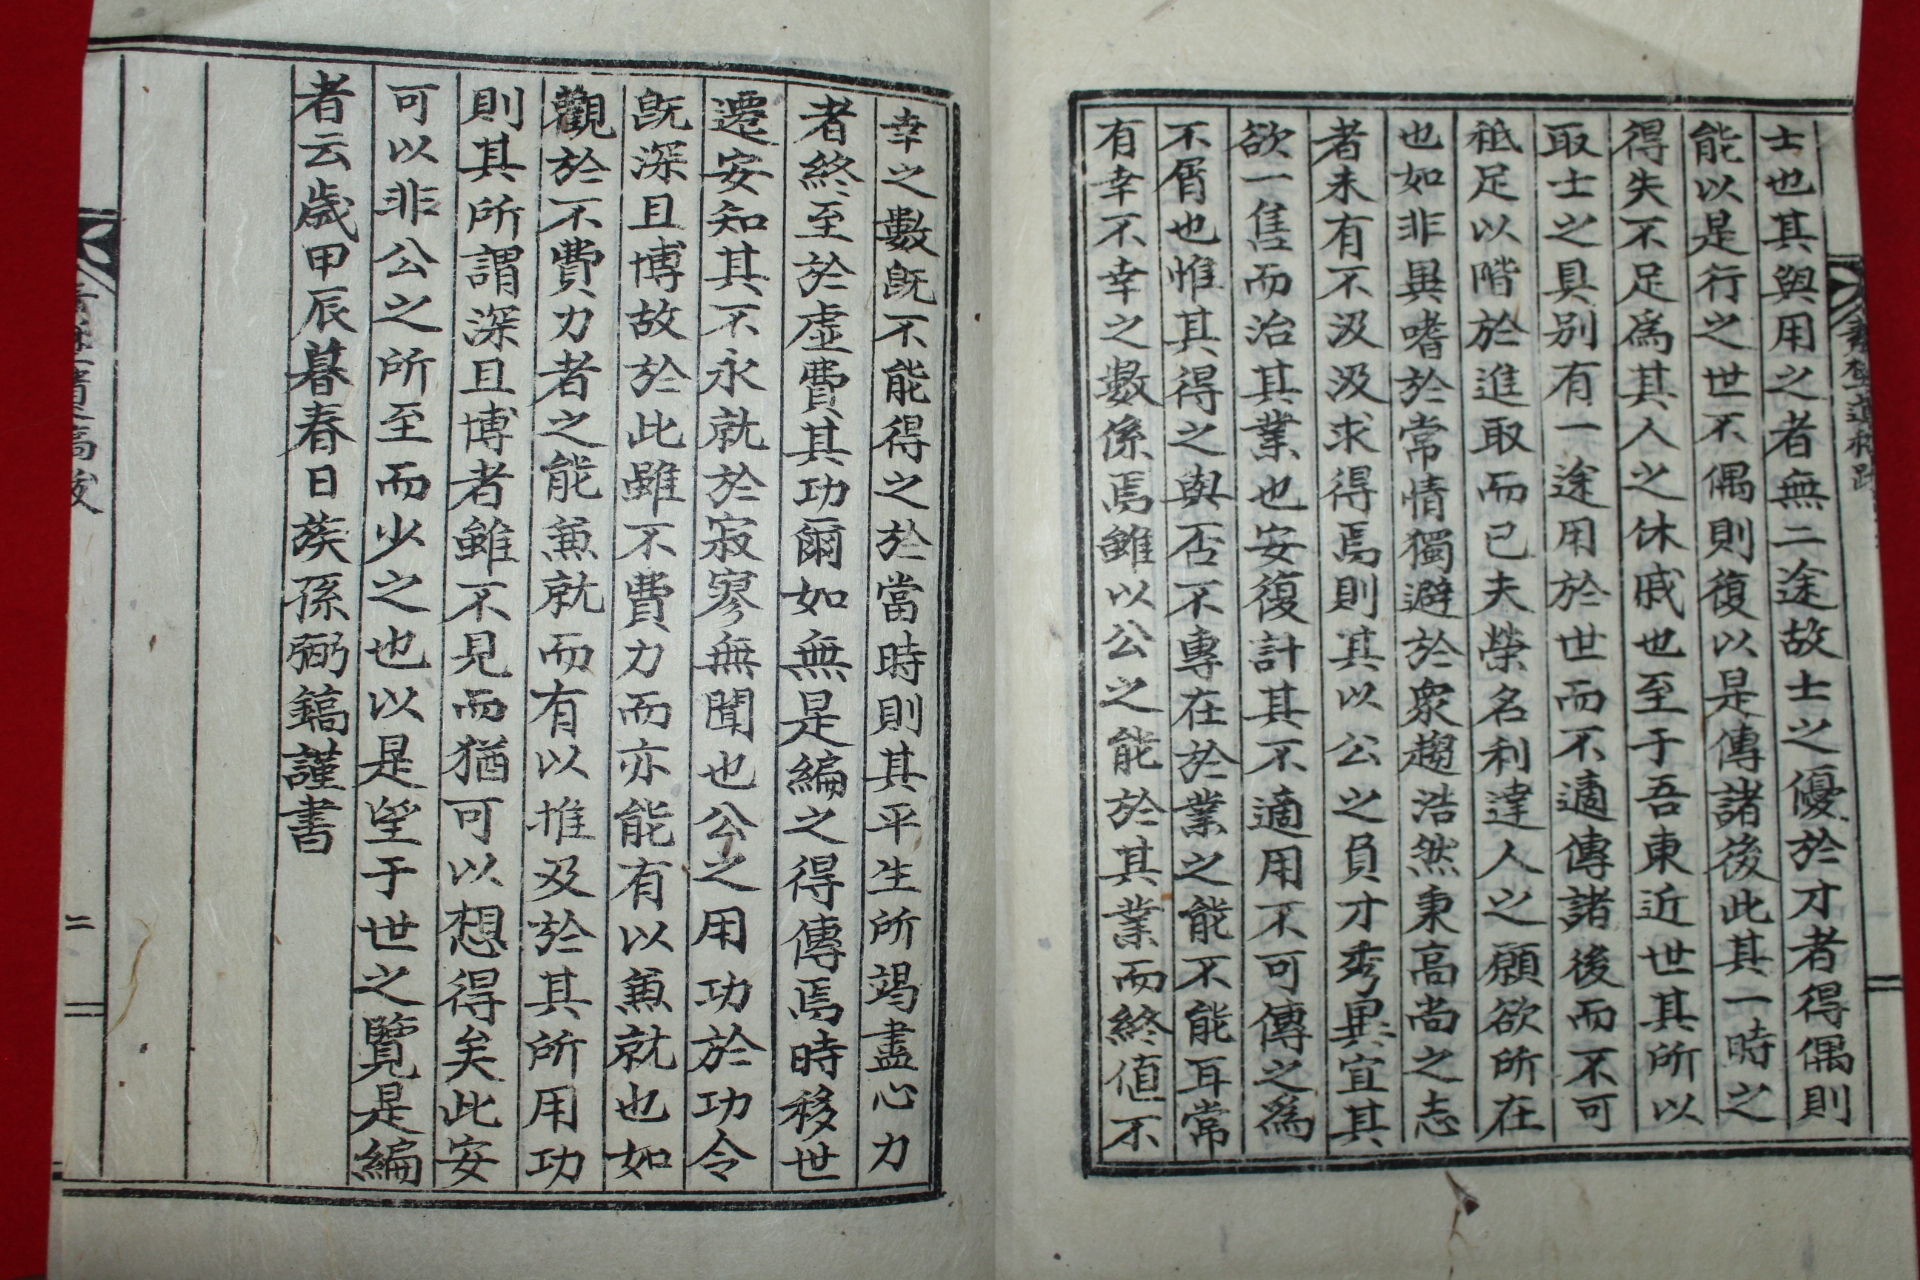 士也其與用之者無二途故士之優於才者得偶則
能以是行之世不偶則復以是傳諸後此其一時之
得失不足爲其人之休戚也至于吾東近世其所以
取士之具别有一途用於世而不適傳諸後而不可
秪足以階於進取而已夫榮名利達人之願欲所在
也如非異嗜於常情獨避於衆趨浩然秉高尚之志
者未有不汲汲求得焉則其以公之負才秀異宜其
欲一售而治其業也安復計其不適用不可傳之爲
不屑也惟其得之與否不專在於業之能不能耳常
有幸不幸之數係焉雖以公之能於其業而終値不
幸之數旣不能得之於當時則其平生所竭盡心力
者終至於虛費其功爾如無是編之得傳焉時移世
遷安知其不永就於寂寥無聞也公之用功於功令
旣深且博故於此雖不費力而亦能有以兼就也如
觀於不費力者之能兼就而有以推及於其所用功
則其所謂深且博者雖不見而猶可以想得矣此安
可以非公之所至而少之也以是望于世之覽是編
者云歲甲辰暮春日族孫弼鎬謹書
遺稿跋
二